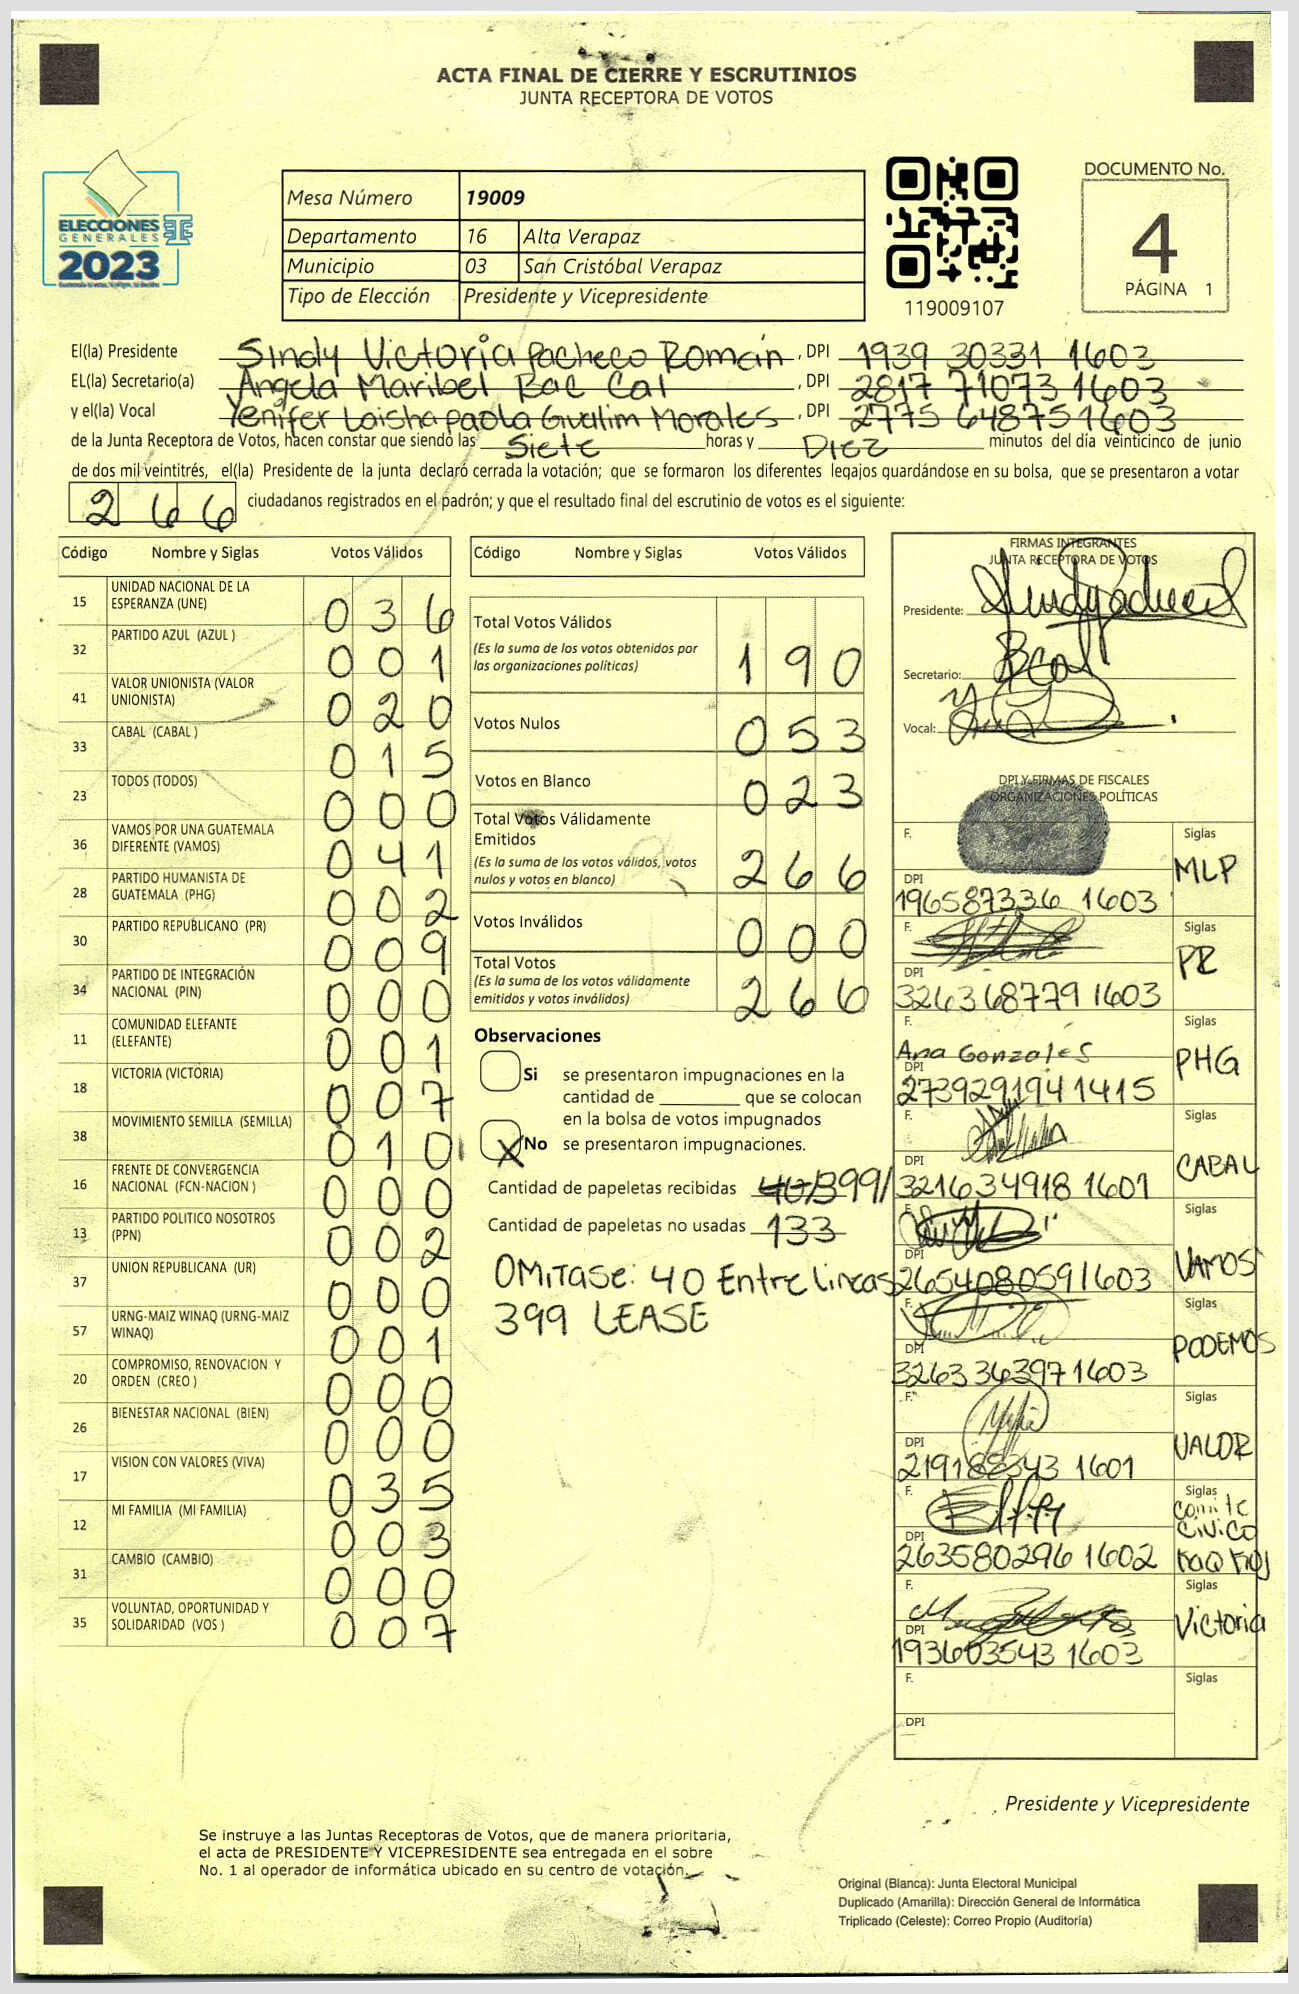 ACTA FINAL DE CIERRE Y ESCRUTINIOS
JUNTA RECEPTORA DE VOTOS
ELECCIONES
GENERALES
2023
Mesa Número 19009
Departamento 16 Alta Verapaz
Municipio 03 San Cristóbal Verapaz
Tipo de Elección Presidente y Vicepresidente
119009107
DOCUMENTO No.
4
PÁGINA 1
El(la) Presidente Sindy Victoria Pacheco Román, DPI 1939 30331 1603
EL(la) Secretario(a) Angela Maribel Bac Cal, DPI 2817 71073 1603
y el(la) Vocal Yenifer Laisha Paola Gualim Morales, DPI 2775 64875 1603
de la Junta Receptora de Votos, hacen constar que siendo las Siete horas y Diez minutos del día veinticinco de junio
de dos mil veintitrés, el(la) Presidente de la junta declaró cerrada la votación; que se formaron los diferentes legajos guardándose en su bolsa, que se presentaron a votar
266 ciudadanos registrados en el padrón; y que el resultado final del escrutinio de votos es el siguiente:
Código Nombre y Siglas Votos Válidos
15 UNIDAD NACIONAL DE LA ESPERANZA (UNE) 036
32 PARTIDO AZUL (AZUL ) 001
41 VALOR UNIONISTA (VALOR UNIONISTA) 020
33 CABAL (CABAL ) 015
23 TODOS (TODOS) 000
36 VAMOS POR UNA GUATEMALA DIFERENTE (VAMOS) 041
28 PARTIDO HUMANISTA DE GUATEMALA (PHG) 002
30 PARTIDO REPUBLICANO (PR) 009
34 PARTIDO DE INTEGRACIÓN NACIONAL (PIN) 000
11 COMUNIDAD ELEFANTE (ELEFANTE) 001
18 VICTORIA (VICTORIA) 007
38 MOVIMIENTO SEMILLA (SEMILLA) 010
16 FRENTE DE CONVERGENCIA NACIONAL (FCN-NACION ) 000
13 PARTIDO POLITICO NOSOTROS (PPN) 002
37 UNION REPUBLICANA (UR) 000
57 URNG-MAIZ WINAQ (URNG-MAIZ WINAQ) 001
20 COMPROMISO, RENOVACION Y ORDEN (CREO ) 000
26 BIENESTAR NACIONAL (BIEN) 000
17 VISION CON VALORES (VIVA) 035
12 MI FAMILIA (MI FAMILIA) 003
31 CAMBIO (CAMBIO) 000
35 VOLUNTAD, OPORTUNIDAD Y SOLIDARIDAD (VOS ) 007
Código Nombre y Siglas Votos Válidos
Total Votos Válidos 190
(Es la suma de los votos obtenidos por
las organizaciones políticas)
Votos Nulos 053
Votos en Blanco 023
Total Votos Válidamente
Emitidos 266
(Es la suma de los votos válidos, votos
nulos y votos en blanco)
Votos Inválidos 000
Total Votos 266
(Es la suma de los votos válidamente
emitidos y votos inválidos)
Observaciones
Si se presentaron impugnaciones en la
cantidad de ________ que se colocan
en la bolsa de votos impugnados
X No se presentaron impugnaciones.
Cantidad de papeletas recibidas 40/399/
Cantidad de papeletas no usadas 133
OMITASE: 40 Entre lineas
399 LEASE
FIRMAS INTEGRANTES
JUNTA RECEPTORA DE VOTOS
Presidente:
Secretario:
Vocal:
DPI Y FIRMAS DE FISCALES
ORGANIZACIONES POLÍTICAS
F. Siglas MLP
DPI 196587336 1603
F. Siglas PR
DPI 326368779 1603
F. Ana Gonzales Siglas PHG
DPI 2739291941415
F. Siglas CABAL
DPI 321634918 1601
F. Siglas VAMOS
DPI 265408059 1603
F. Siglas PODEMOS
DPI 326336397 1603
F. Siglas VALOR
DPI 219188343 1601
F. Siglas Comite Civico
DPI 263580296 1602
F. Siglas Victoria
DPI 193603543 1603
F. Siglas
DPI
Presidente y Vicepresidente
Se instruye a las Juntas Receptoras de Votos, que de manera prioritaria,
el acta de PRESIDENTE Y VICEPRESIDENTE sea entregada en el sobre
No. 1 al operador de informática ubicado en su centro de votación.
Original (Blanca): Junta Electoral Municipal
Duplicado (Amarilla): Dirección General de Informática
Triplicado (Celeste): Correo Propio (Auditoría)